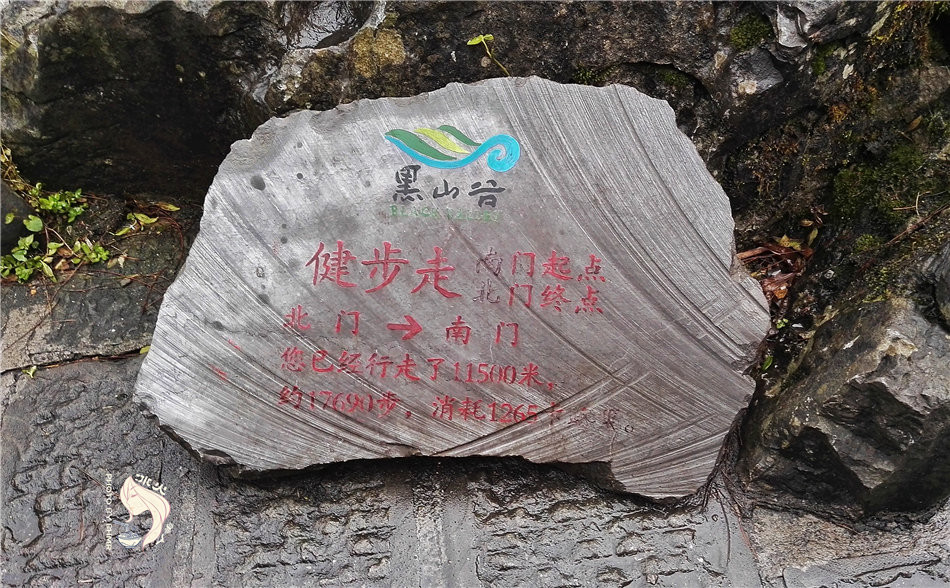 黑山谷
健步走 南门起点
北门终点
北 门 → 南 门
您已经行走了11500米，
约17690步，消耗1265
PHOTO BY